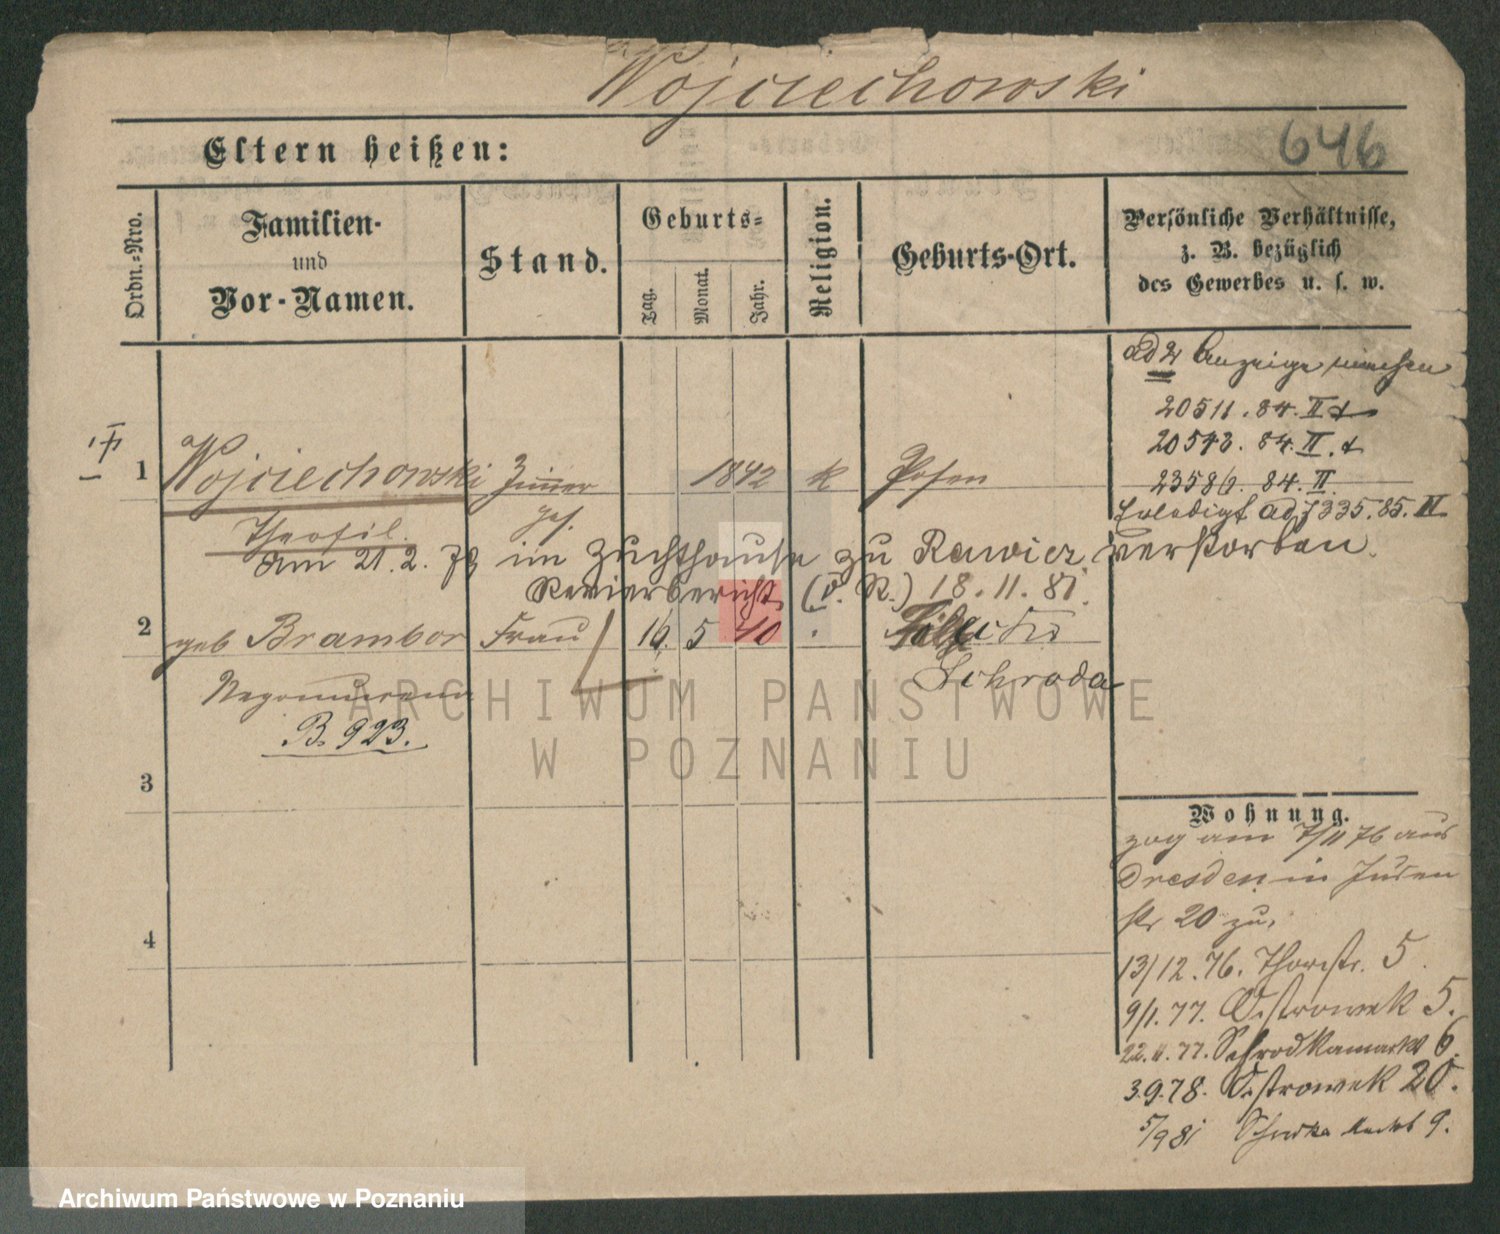 Wojciechowski
646
Eltern heißen:
Ordn.-Nro.
Familien-
und
Vor-Namen.
Stand.
Geburts-
Tag.
Monat.
Jahr.
Religion.
Geburts-Ort.
Persönliche Verhältnisse,
z. B. bezüglich
des Gewerbes u. s. w.
ad 2 Anzeige
20511. 84. II
20543. 84. II.
23586. 84. II
Erledigt ad 7335. 85. IV
1 Wojciechowski Zimmer 1842 k Posen
ges.
Theofil.
am 21. 2. 79 im Zuchthause zu Rawicz verstorben.
Revierbericht (V. R.) 18. 11. 81.
2 geb Brambor Frau 16. 5 40
Schroda
B. 923.
3
4
Wohnung.
zog am 7/11 76 aus
Dresden in Juden
str 20 zu.
13/12. 76. Thorstr. 5.
9/1. 77. Ostrowek 5.
22. 11. 77. Schrodkamarkt 6.
3.9.78. Ostrowek 20.
5/9 81 Schrodka Markt 9.
ARCHIWUM PAŃSTWOWE
W POZNANIU
Archiwum Państwowe w Poznaniu